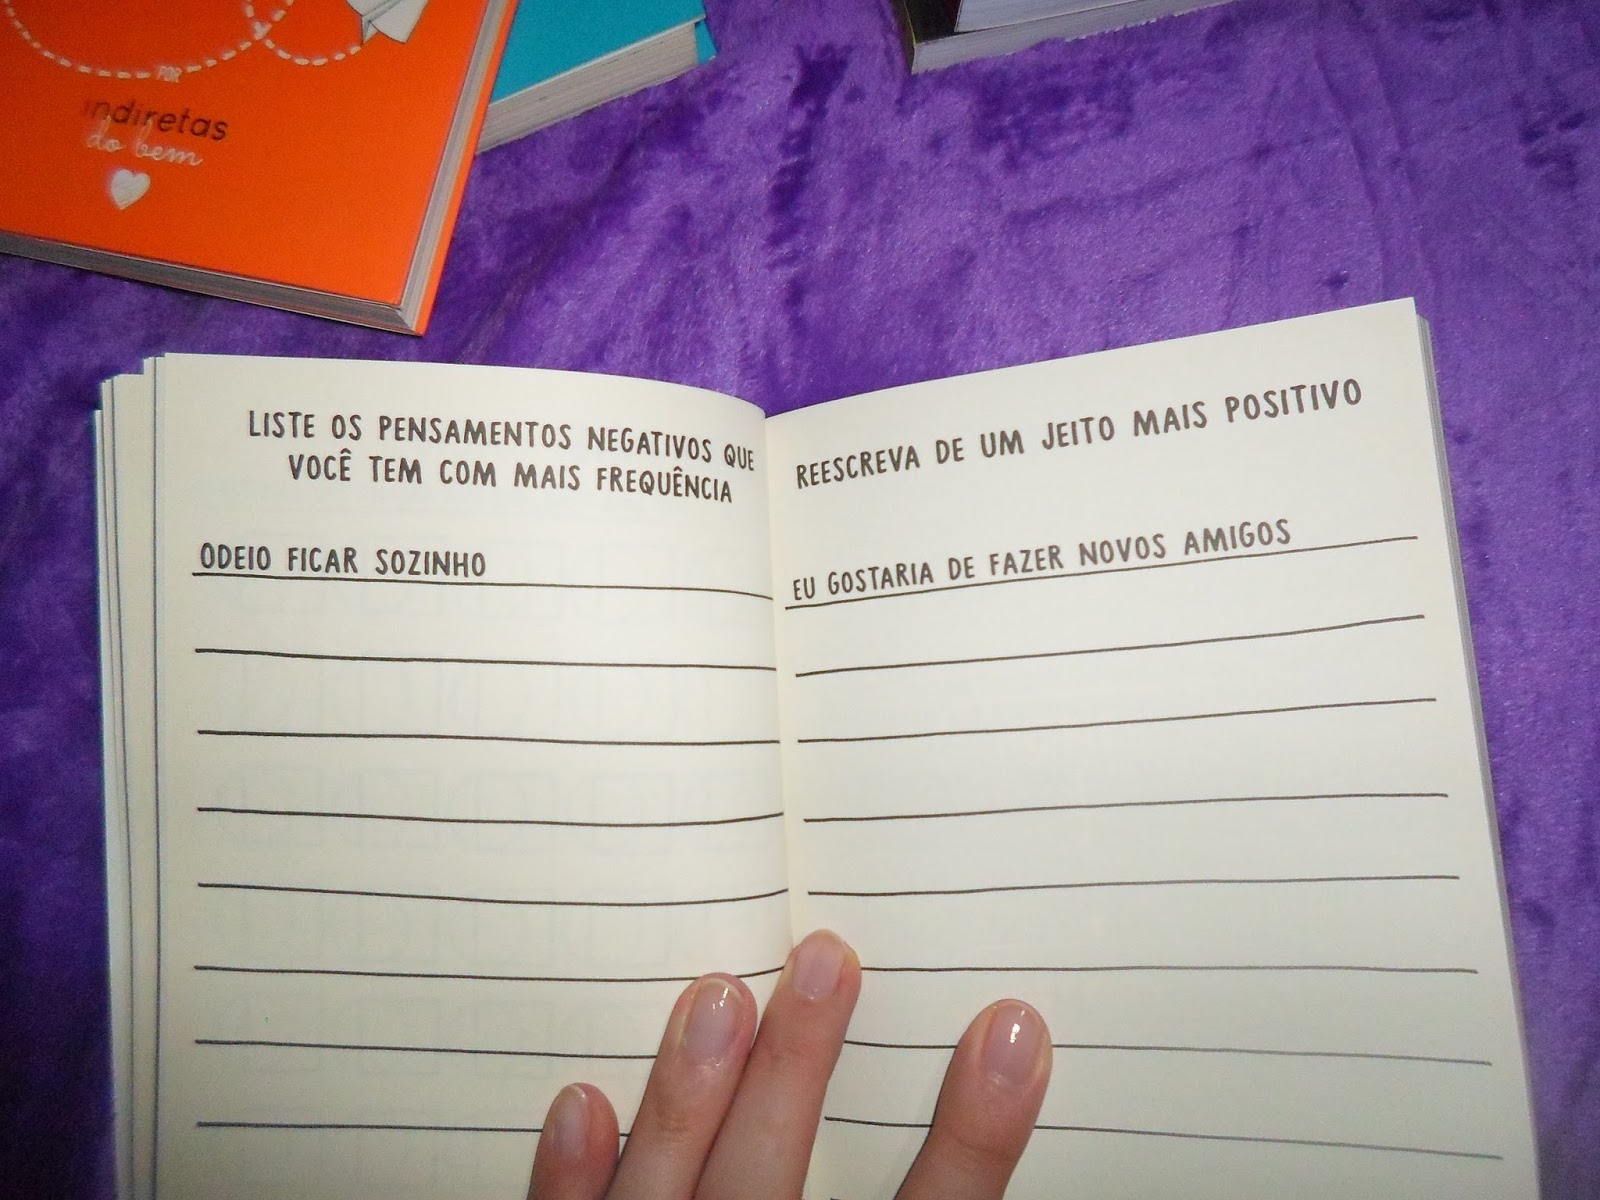 POR
indiretas
do bem
LISTE OS PENSAMENTOS NEGATIVOS QUE
VOCÊ TEM COM MAIS FREQUÊNCIA
ODEIO FICAR SOZINHO
REESCREVA DE UM JEITO MAIS POSITIVO
EU GOSTARIA DE FAZER NOVOS AMIGOS